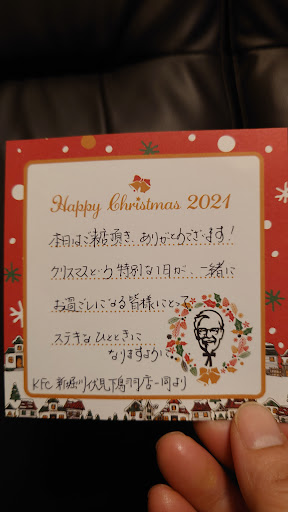 Happy Christmas 2021
本日はご来店頂き、ありがとうございます!
クリスマスという特別な1日が、一緒に
お過ごしになる皆様にとって
ステキなひとときに
なりますように
KFC 新堀川伏見下鳥羽店一同より